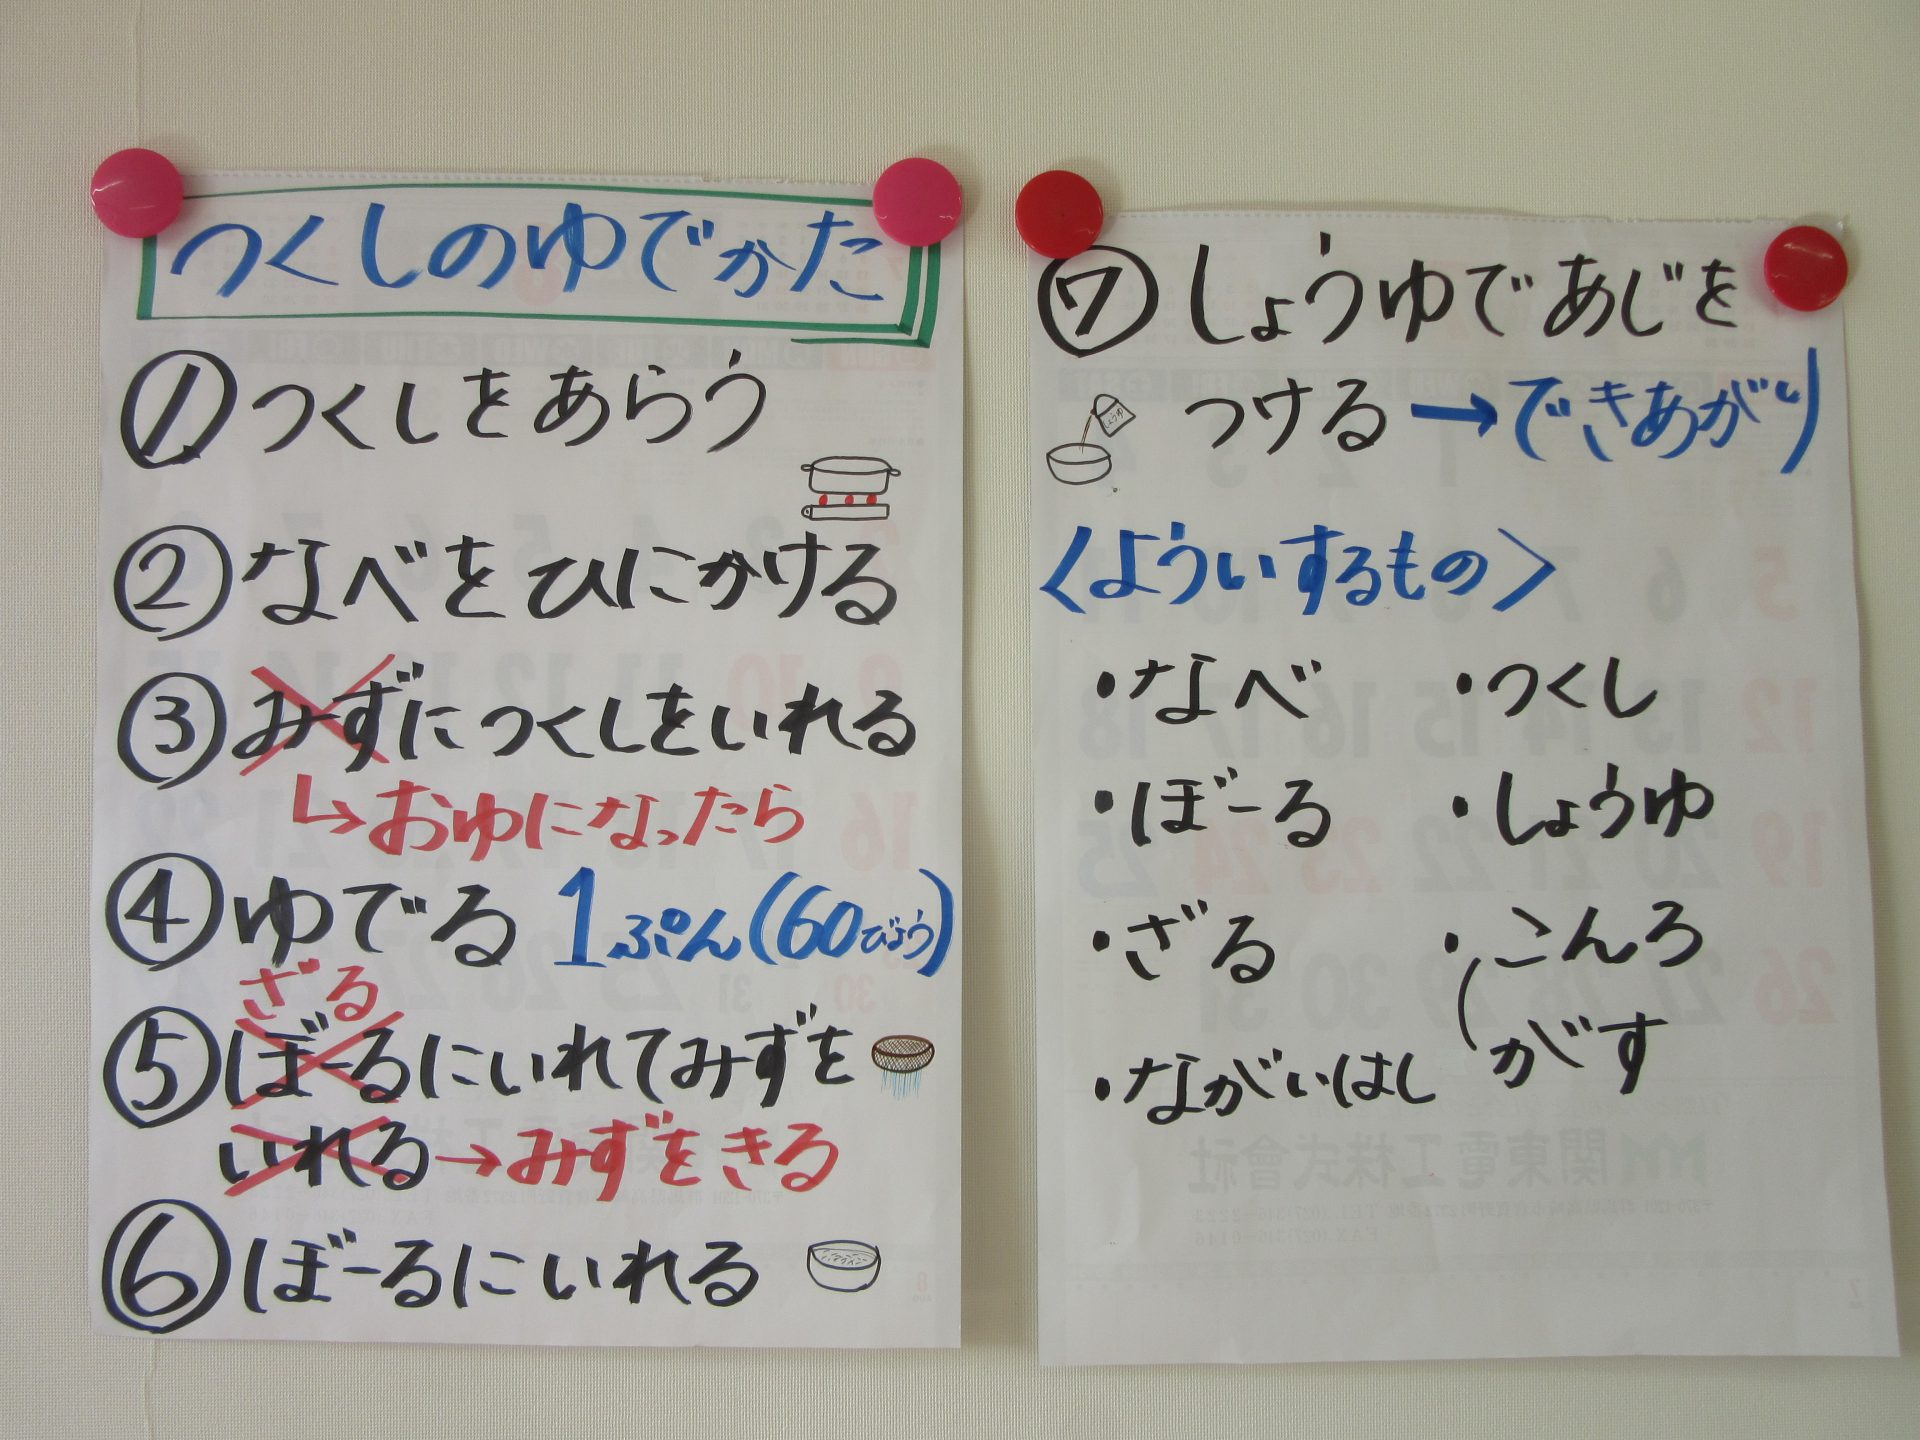 つくしのゆでかた
①つくしをあらう
②なべをひにかける
③みずにつくしをいれる
↳おゆになったら
④ゆでる 1ぷん(60びょう)
ざる
⑤ぼーるにいれてみずを
いれる→みずをきる
⑥ぼーるにいれる
⑦しょうゆであじを
つける→できあがり
しょうゆ
<よういするもの>
・なべ
・ぼーる
・ざる
・ながいはし
・つくし
・しょうゆ
・こんろ
(がす
関東電工株式會社